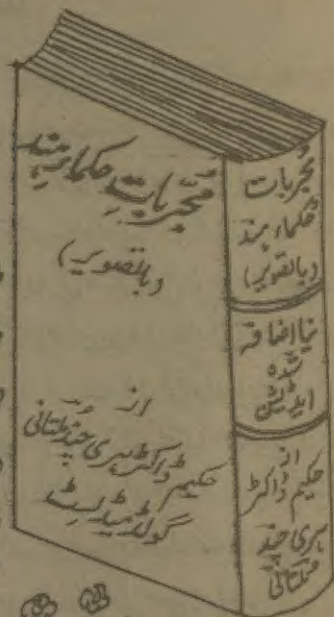 مجربات حکماء ہند
(باتصویر)
از
حکیم ڈاکٹر ہری چند ملتانی
گولڈ میڈلسٹ
مجربات
حکماء ہند
(باتصویر)
نیا اضافہ
شدہ
ایڈیشن
از
حکیم ڈاکٹر
ہری چند
ملتانی